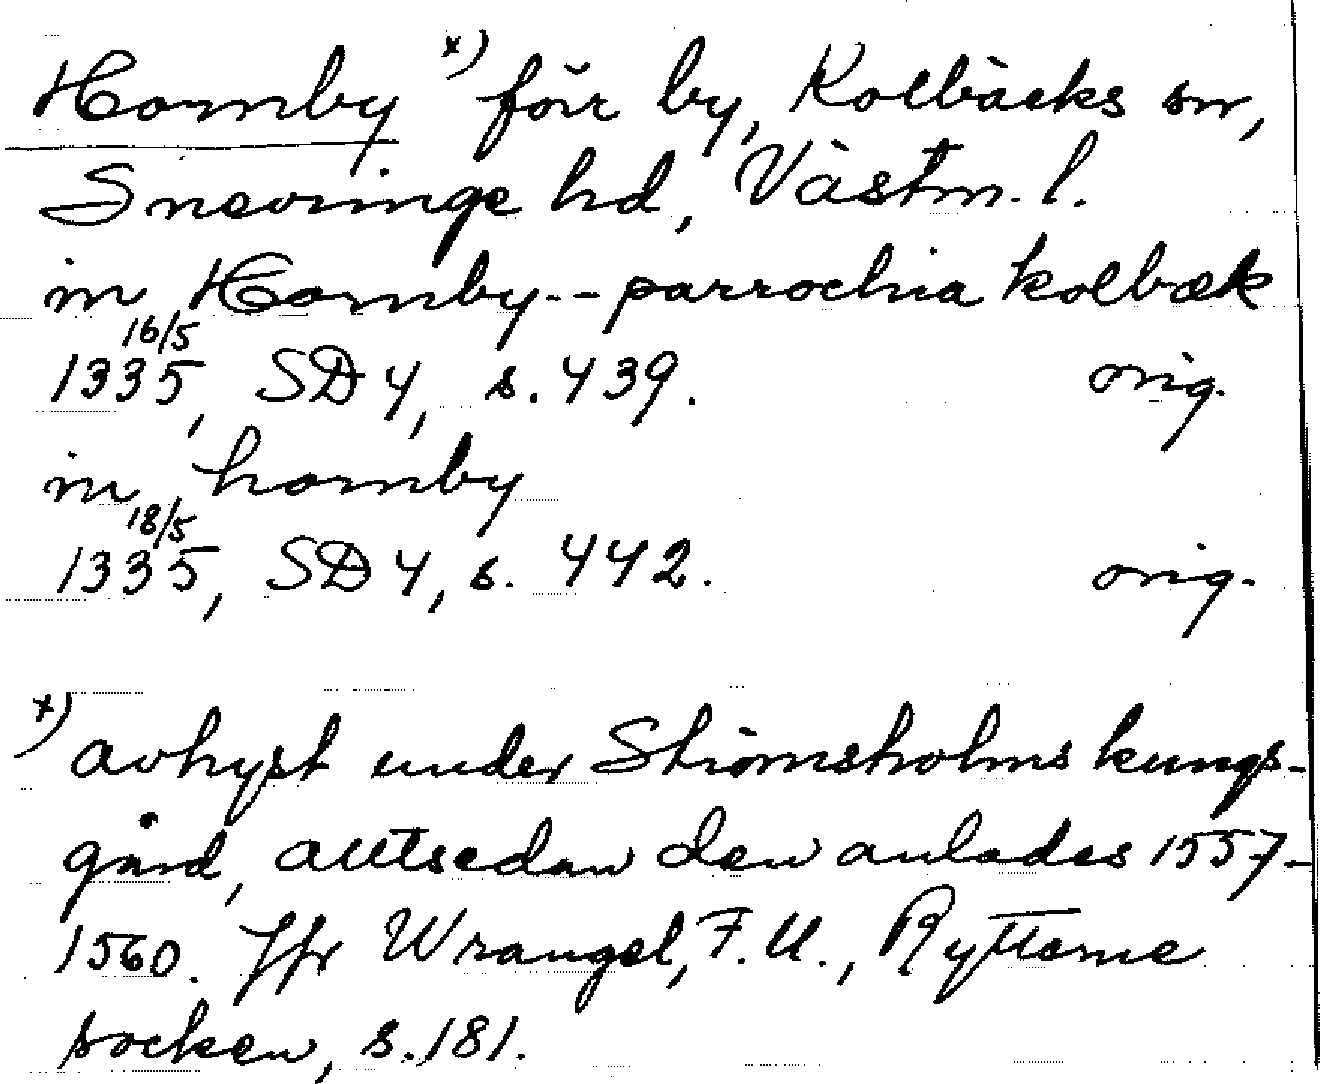 Hornby x) förr by, Kolbäcks sn,
Snevringe hd, Västm. l.
in Hornby -- parrochia kolbæk
16/5
1335, SD 4, s. 439. orig.
in hornby
18/5
1335, SD 4, s. 442. orig.
x) avhyst under Strömsholms kungs-
gård, alltsedan den anlades 1557-
1560. Jfr Wrangel, F.U., Rytterne
socken, s. 181.